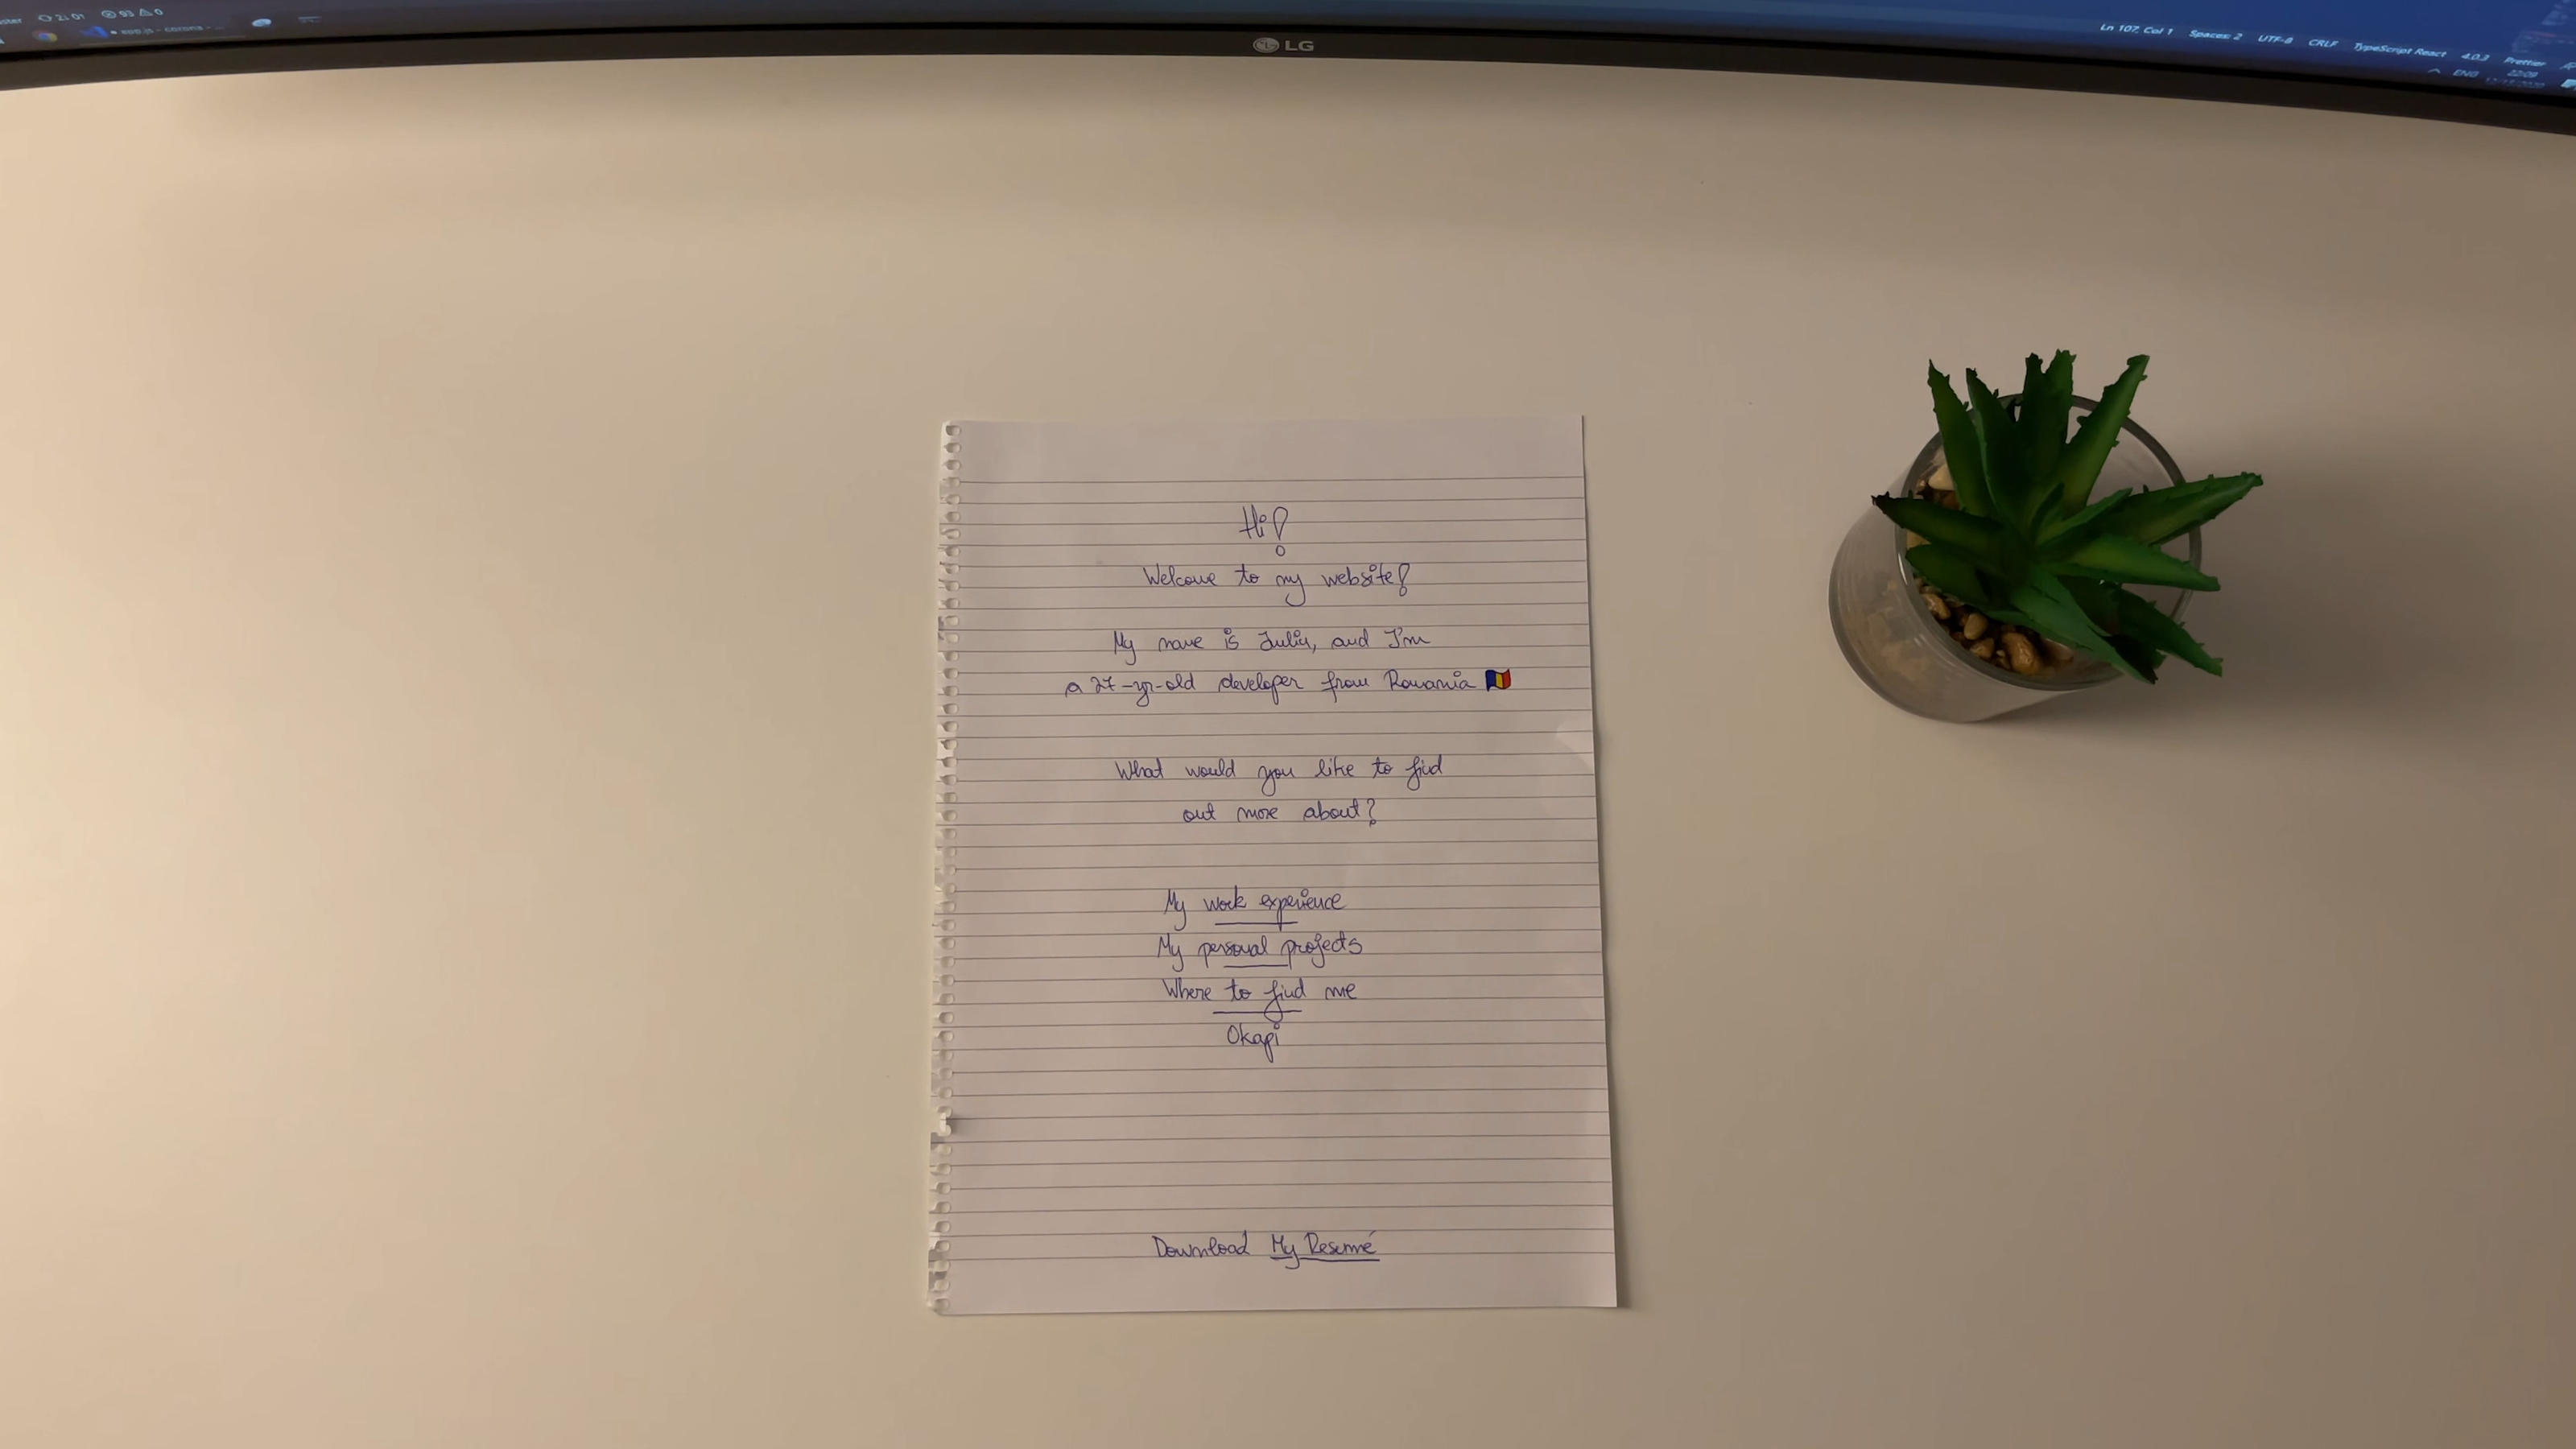 21 01 93 0
app.js - corona - ...
LG
Ln 107, Col 1 Spaces: 2 UTF-8 CRLF TypeScript React 4.0.3 Prettier
ENG 22:09
Hi!
Welcome to my website!
My name is Iuliu, and I'm
a 27-yr-old developer from Romania 🇷🇴
What would you like to find
out more about?
My work experience
My personal projects
Where to find me
Okapi
Download My Resumé